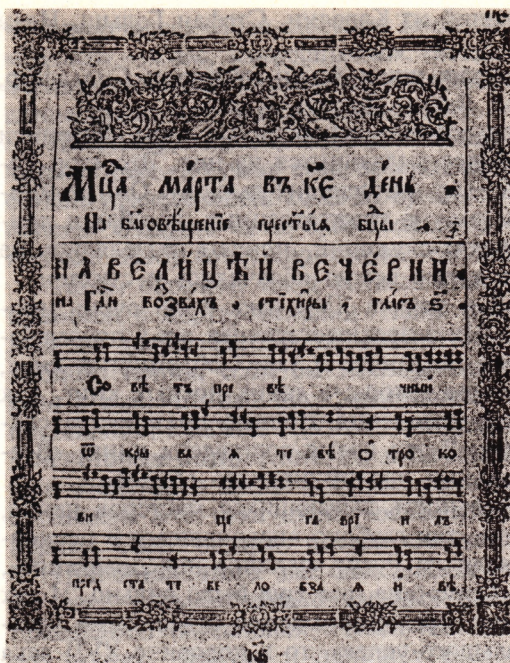 Мц҃а ма́рта въ к҃е де́нь
На бл҃говѣщенїе прест҃ы́ѧ бцы
НА ВЕЛИ́ЦѢЙ ВЕЧЕ́РНИ
на Гдⷭ҇и возва́хъ стїхи́ры гла́съ ѕ҃
Со вѣ тъ пре вѣ чный
ѿ кры ва ѧ те бѣ О́ тро ко
ви це га врї и лъ
пред ста те бе ло бза ѧ и вѣ
кв